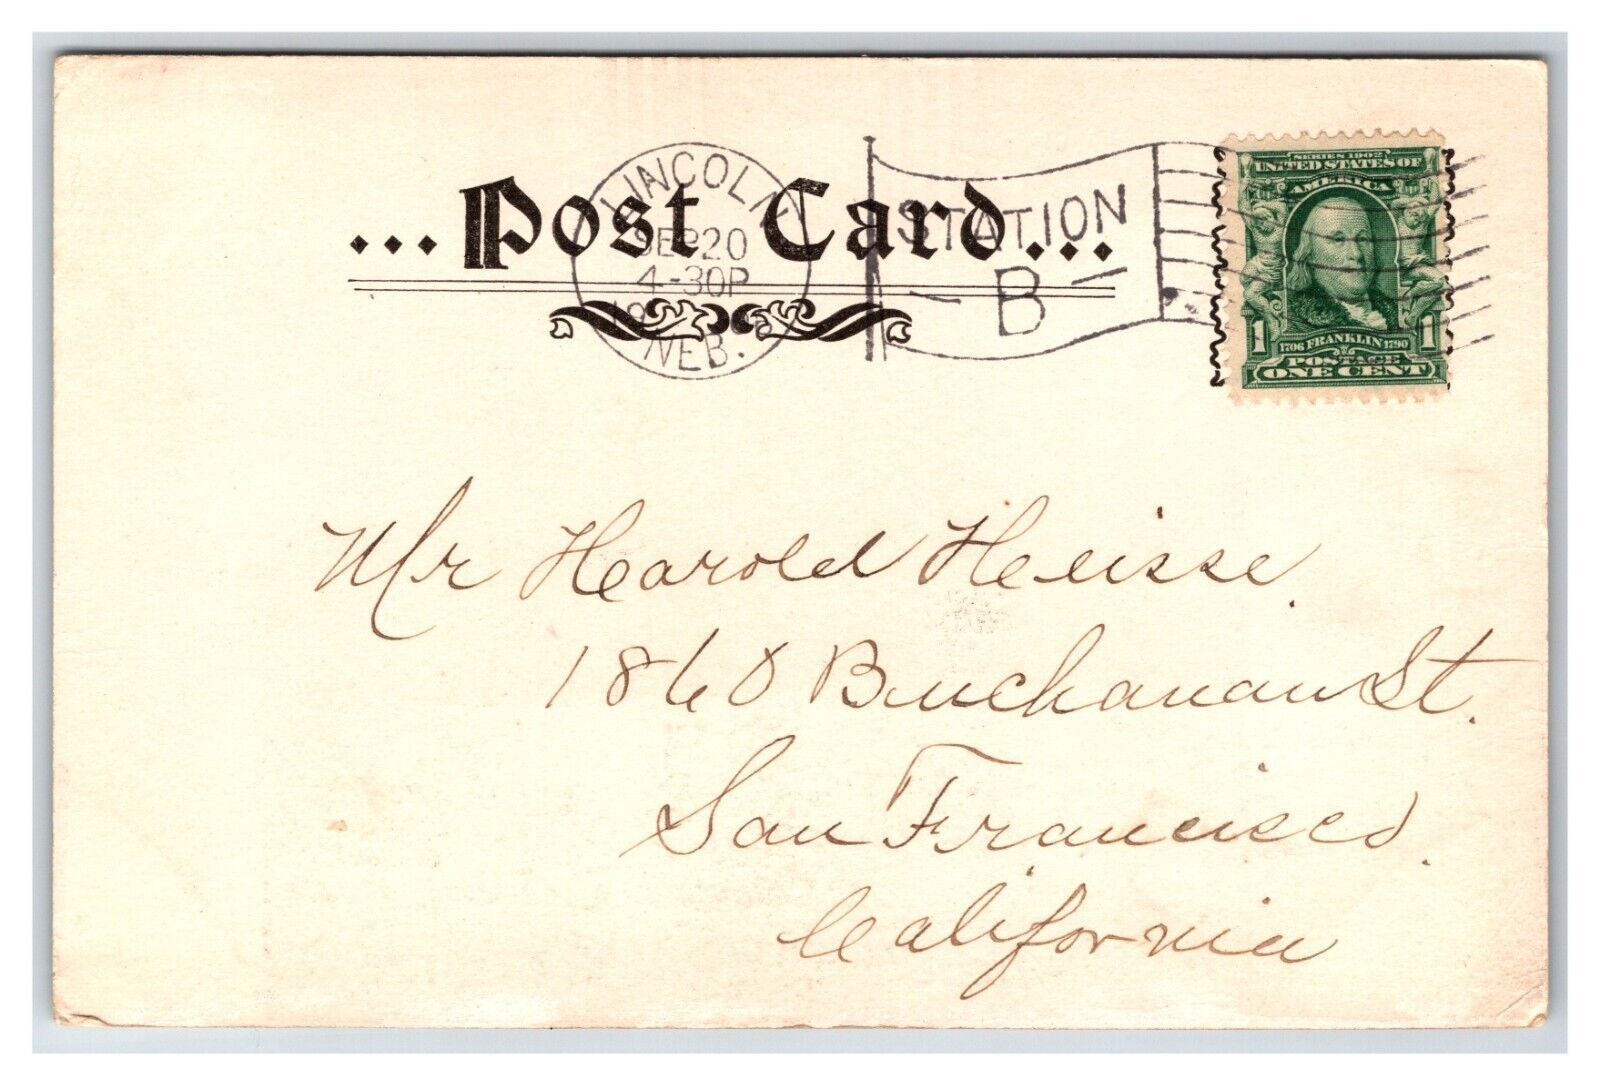 ... Post Card ...
LINCOLN
SEP 20
4-30P
NEB.
STATION
- B -
SERIES 1902
UNITED STATES OF
AMERICA
1 1
1706 FRANKLIN 1790
POSTAGE
ONE CENT
Mr Harold Heisse.
1860 Buchanan St.
San Francisco.
California